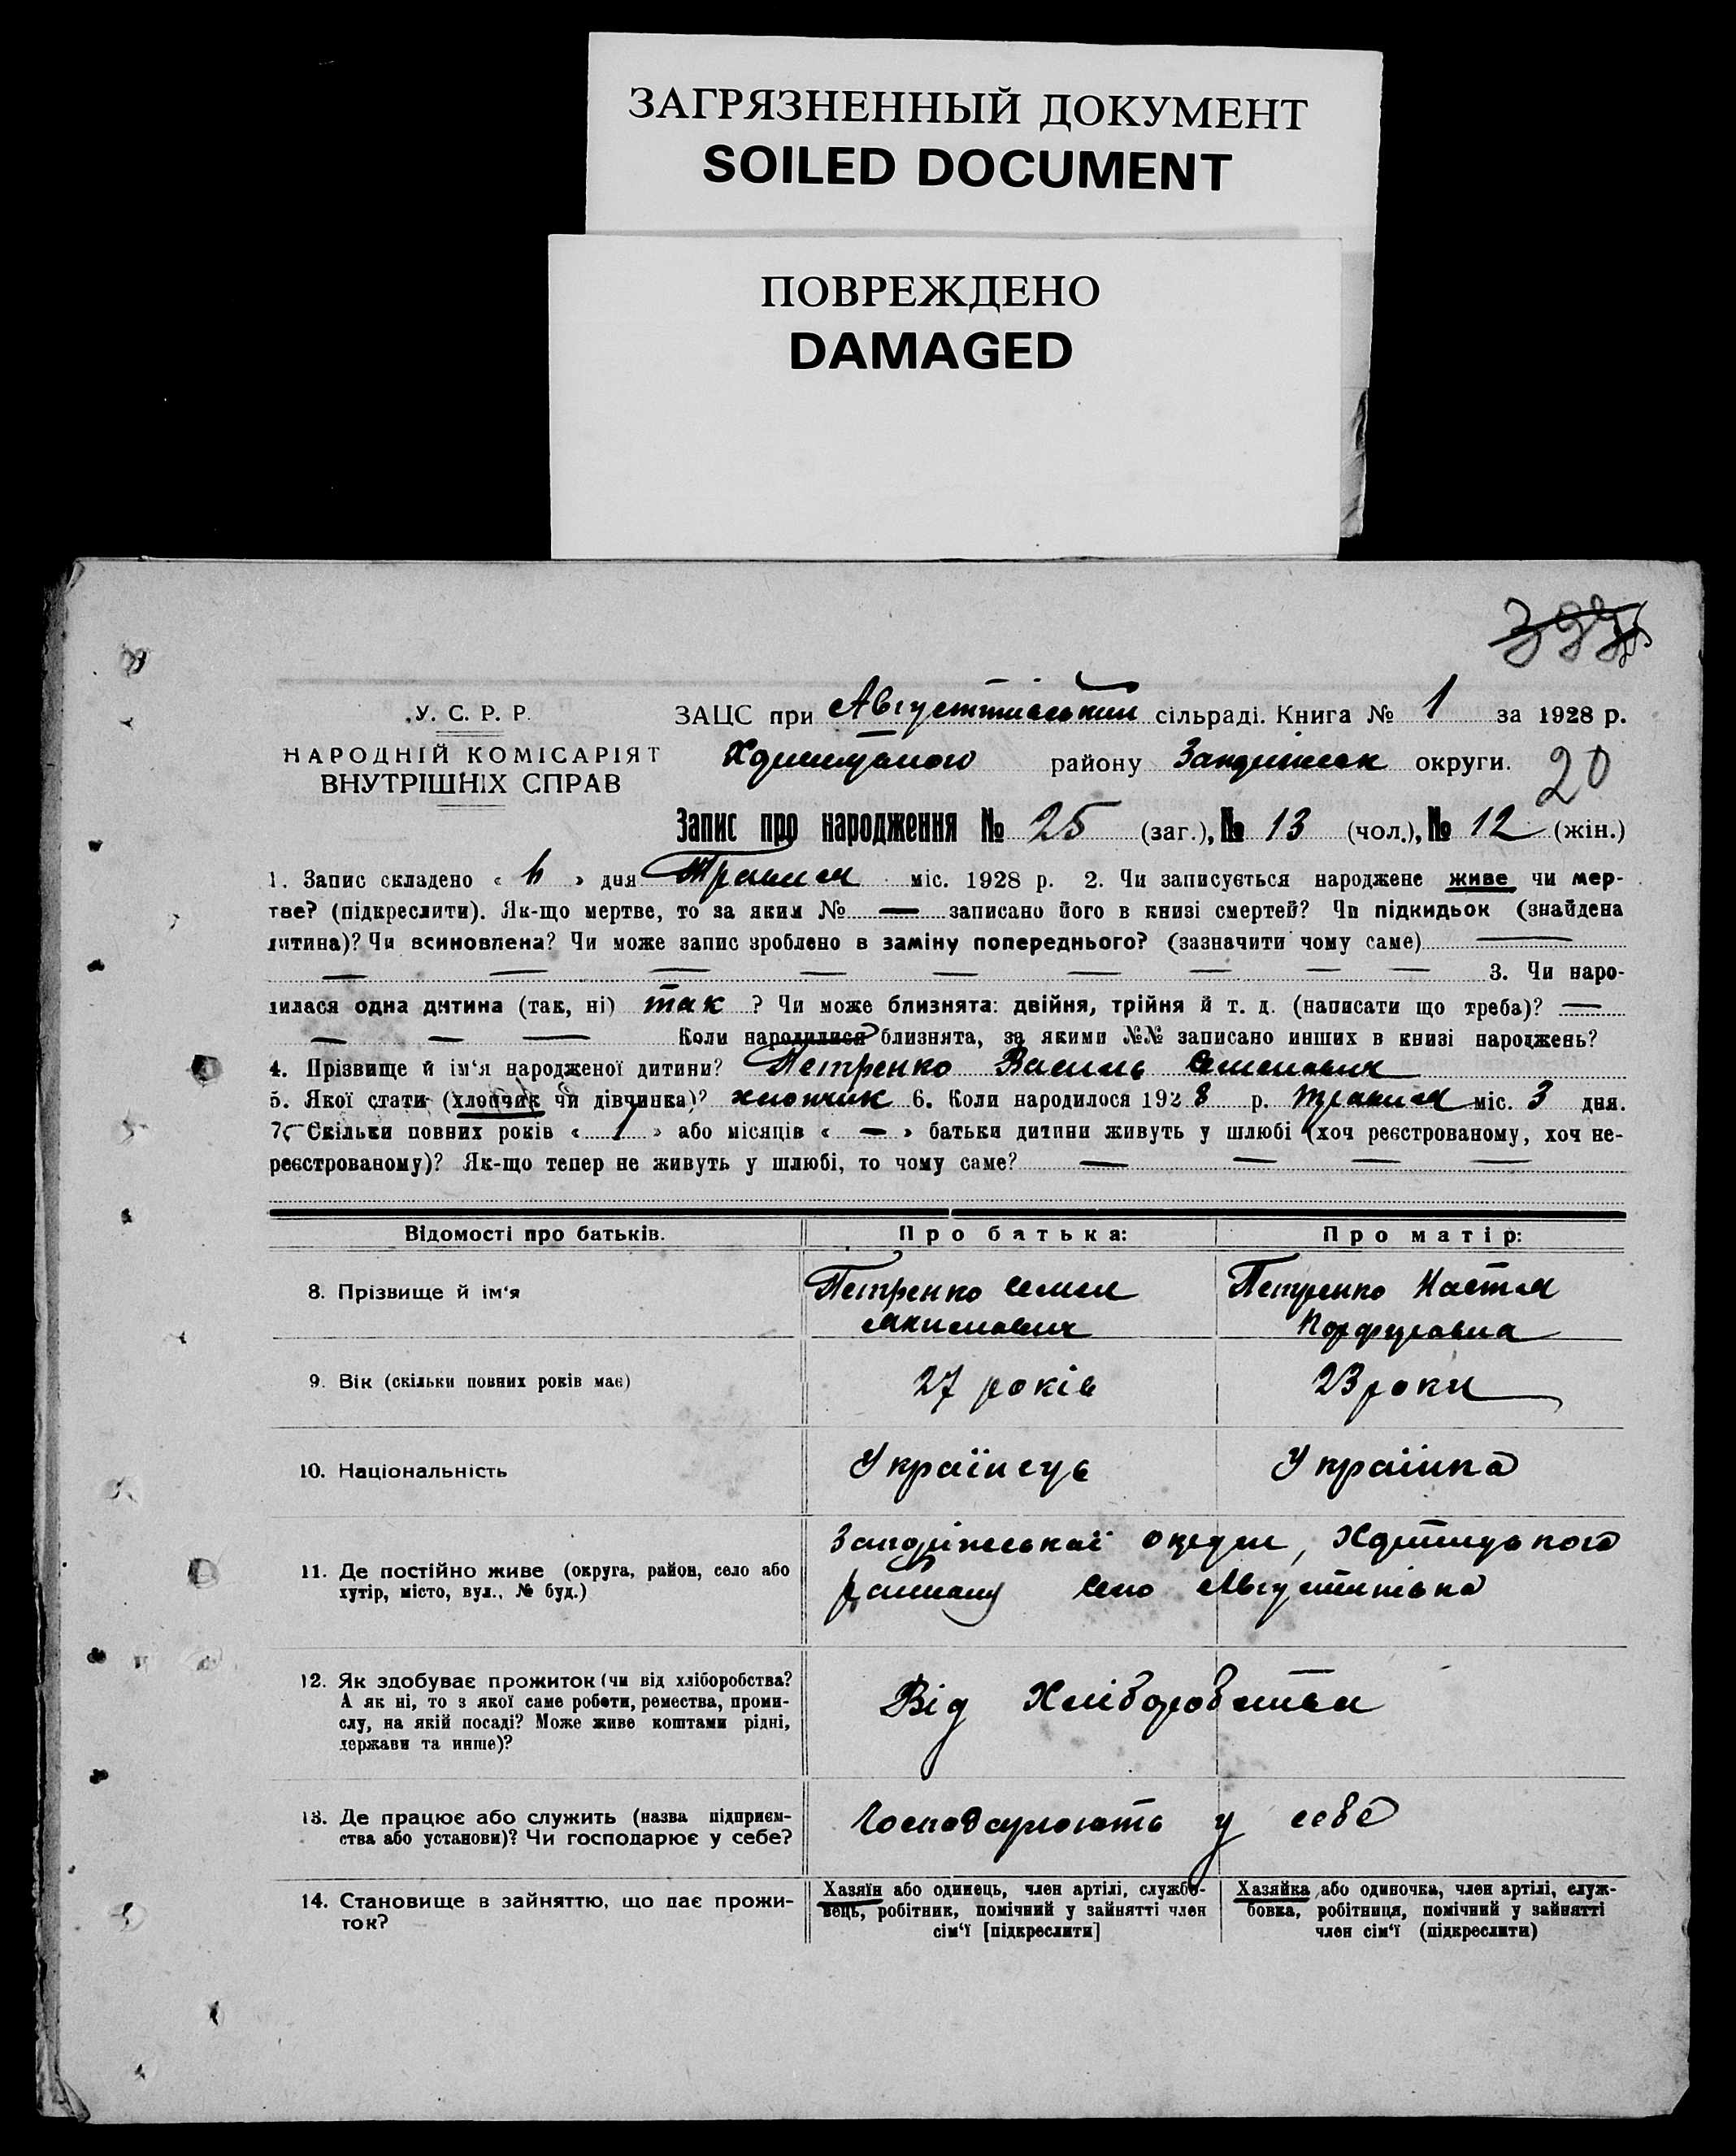 ЗАГРЯЗНЕННЫЙ ДОКУМЕНТ
SOILED DOCUMENT
ПОВРЕЖДЕНО
DAMAGED
У. С. Р. Р.
НАРОДНІЙ КОМІСАРІЯТ
ВНУТРІШНІХ СПРАВ
ЗАЦС при сільраді. Книга № 1 за 1928 р.
району округи.
20
Запис про народження № 25 (заг.), № 13 (чол.), № 12 (жін.)
1. Запис складено « » дня Травня міс. 1928 р. 2. Чи записується народжене живе чи мер-
тве? (підкреслити). Як-що мертве, то за яким № — записано його в книзі смертей? Чи підкидьок (знайдена
дитина)? Чи всиновлена? Чи може запис зроблено в заміну попереднього? (зазначити чому саме) —
— — — — — — — — — 3. Чи наро-
дилася одна дитина (так, ні) так ? Чи може близнята: двійня, трійня й т. д. (написати що треба)? —
— — — Коли народилися близнята, за якими №№ записано инших в книзі народжень?
4. Прізвище й ім‘я народженої дитини? Петренко Василь Семенович
5. Якої стати (хлопчик чи дівчинка)? хлопчик 6. Коли народилося 1928 р. Травня міс. 3 дня.
7. Скільки повних років « 1 » або місяців « — » батьки дитини живуть у шлюбі (хоч реєстрованому, хоч не-
реєстрованому)? Як-що тепер не живуть у шлюбі, то чому саме? — — — —
Відомості про батьків.
Про батька:
Про матір:
8. Прізвище й ім‘я
Петренко Семен
Якимович
Петренко Настя
Порфировна
9. Вік (скільки повних років має)
27 років
23 роки
10. Національність
Українець
Українка
11. Де постійно живе (округа, район, село або
хутір, місто, вул., № буд.)
Запоріжської округи, Хортицького
району село Августинівка
12. Як здобуває прожиток (чи від хліборобства?
А як ні, то з якої саме роботи, ремества, проми-
слу, на якій посаді? Може живе коштами рідні,
держави та инше)?
Від Хліборобства
13. Де працює або служить (назва підприєм-
ства або установи)? Чи господарює у себе?
Господарюють у себе
14. Становище в зайняттю, що дає прожи-
ток?
Хазяїн або одинець, член артілі, службо-
вець, робітник, помічний у зайнятті член
сім‘ї [підкреслити]
Хазяйка або одиночка, член артілі, служ-
бовка, робітниця, помічний у зайнятті
член сім‘ї (підкреслити)